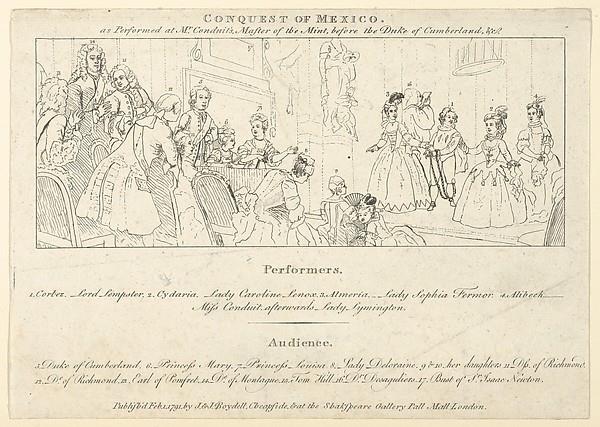 CONQUEST OF MEXICO.
as Performed at Mr. Conduit's, Master of the Mint, before the Duke of Cumberland, &c.
Performers.
1. Cortez, Lord Lempster, 2. Cydaria, Lady Caroline Lenox, 3. Almeria, Lady Sophia Fermor, 4. Alibech
Miss Conduit, afterwards Lady Lymington.
Audience.
5. Duke of Cumberland, 6. Princess Mary, 7. Princess Louisa, 8. Lady Deloraine, 9 & 10. her daughters, 11. Dss. of Richmond,
12. D. of Richmond, 13. Earl of Pomfret, 14. D. of Montague, 15. Tom Hill, 16. Dr. Desaguliers, 17. Bust of Sr. Isaac Newton.
Publish'd Feb. 1. 1791, by J. & J. Boydell, Cheapside, & at the Shakspeare Gallery Pall Mall London.